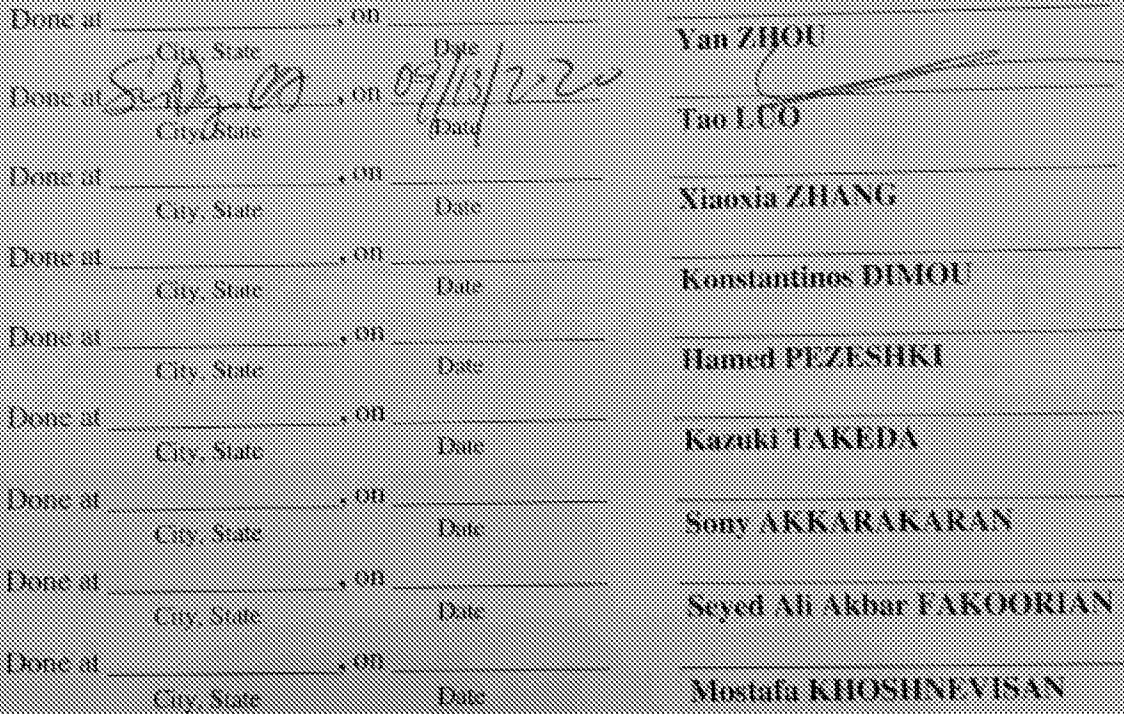 Done at , on
City, State Date Yan ZHOU
Done at , on 09/18/2020
City, State Date Tao LUO
Done at , on
City, State Date Xiaoxia ZHANG
Done at , on
City, State Date Konstantinos DIMOU
Done at , on
City, State Date Hamed PEZESHKI
Done at , on
City, State Date Kazuki TAKEDA
Done at , on
City, State Date Sony AKKARAKARAN
Done at , on
City, State Date Seyed Ali Akbar FAKOORIAN
Done at , on
City, State Date Mostafa KHOSHNEVISAN